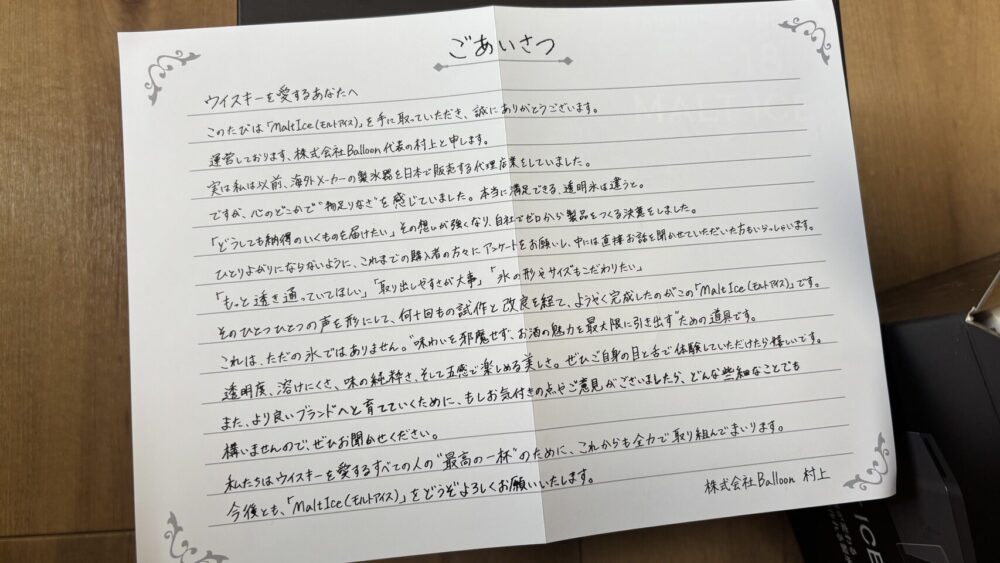 ごあいさつ
ウイスキーを愛するあなたへ
このたびは「MaltIce(モルトアイス)」を手に取っていただき、誠にありがとうございます。
運営しております、株式会社Balloon代表の村上と申します。
実は私は以前、海外メーカーの製氷器を日本で販売する代理店業をしていました。
ですが、心のどこかで“物足りなさ”を感じていました。本当に満足できる、透明氷は違うと。
「どうしても納得のいくものを届けたい」その想いが強くなり、自社でゼロから製品をつくる決意をしました。
ひとりよがりにならないように、これまでの購入者の方々にアンケートをお願いし、中には直接お話を聞かせていただいた方もいらっしゃいます。
「もっと透き通っていてほしい」「取り出しやすさが大事」「氷の形やサイズもこだわりたい」
そのひとつひとつの声を形にして、何十回もの試作と改良を経て、ようやく完成したのがこの「MaltIce(モルトアイス)」です。
これは、ただの氷ではありません。“味わいを邪魔せず、お酒の魅力を最大限に引き出す”ための道具です。
透明度、溶けにくさ、味の純粋さ、そして五感で楽しめる美しさ。ぜひご自身の目と舌で体験していただけたら嬉しいです。
また、より良いブランドへと育てていくために、もしお気付きの点やご意見がございましたら、どんな些細なことでも
構いませんので、ぜひお聞かせください。
私たちはウイスキーを愛するすべての人の“最高の一杯”のために、これからも全力で取り組んでまいります。
今後とも、「MaltIce(モルトアイス)」をどうぞよろしくお願いいたします。
株式会社Balloon 村上
ICE